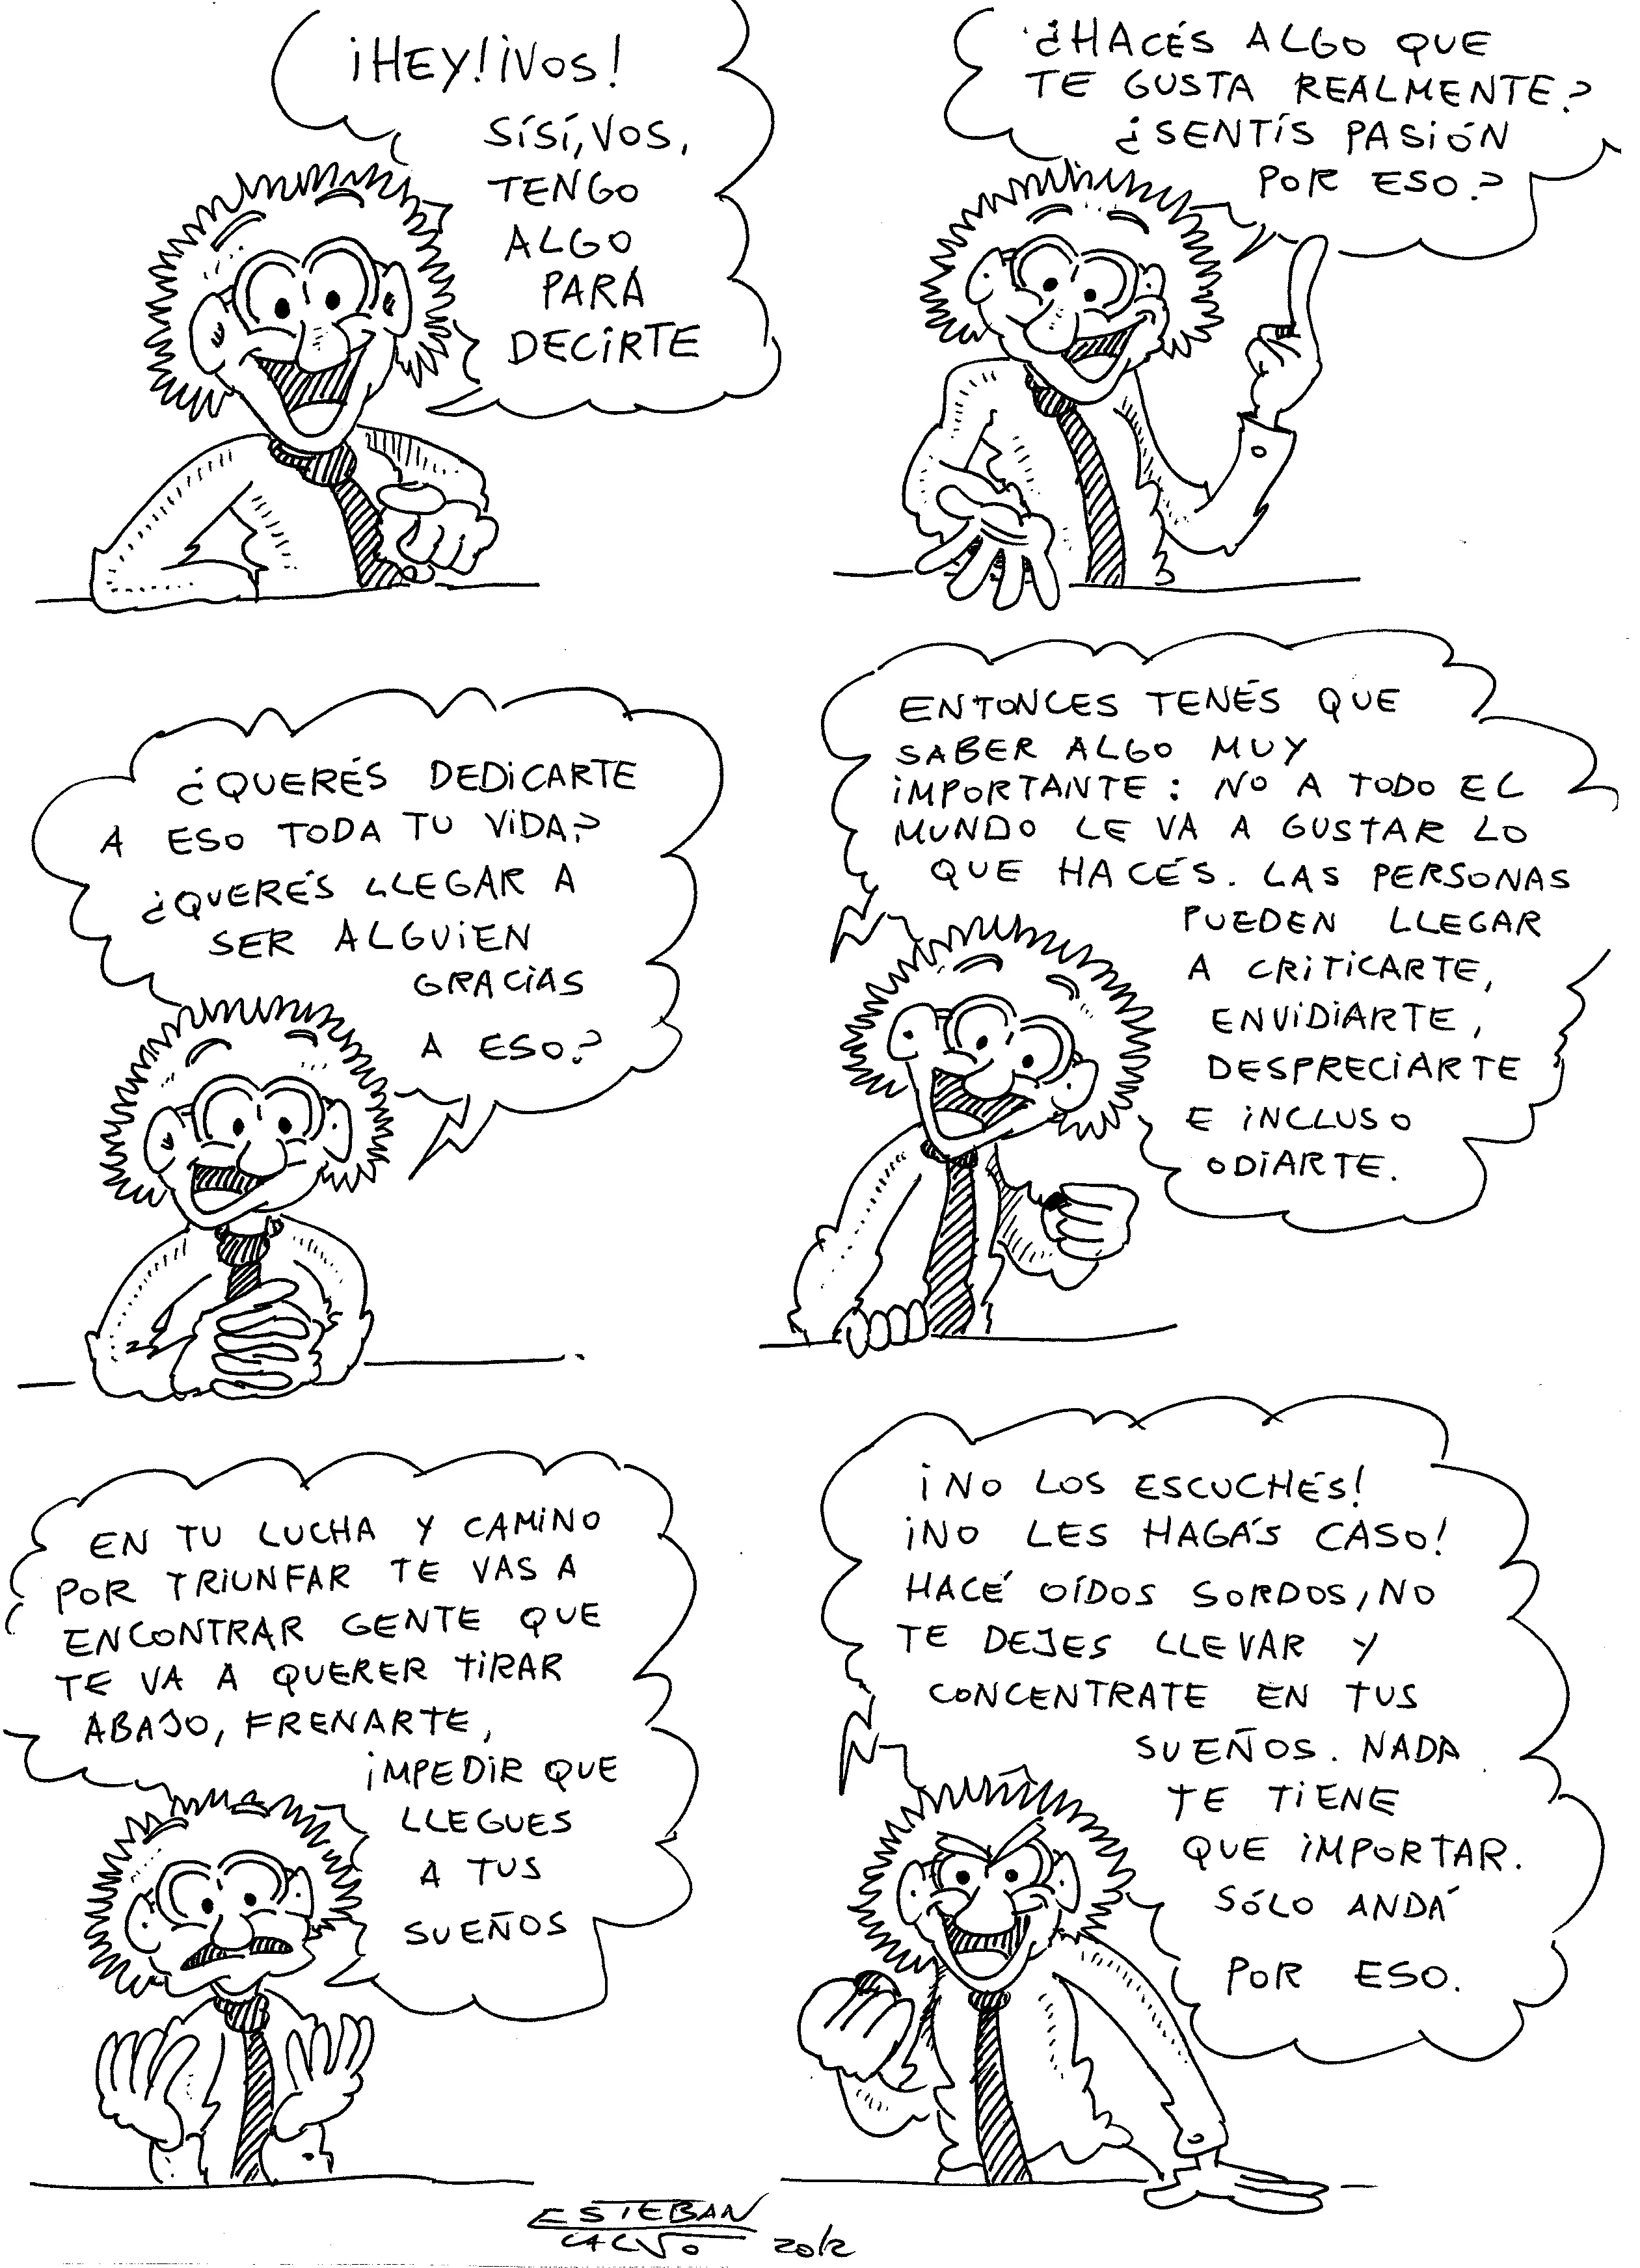 ¡HEY! ¡VOS!
SÍSÍ, VOS,
TENGO
ALGO
PARA
DECIRTE
¿HACÉS ALGO QUE
TE GUSTA REALMENTE?
¿SENTÍS PASIÓN
POR ESO?
¿QUERÉS DEDICARTE
A ESO TODA TU VIDA?
¿QUERÉS LLEGAR A
SER ALGUIEN
GRACIAS
A ESO?
ENTONCES TENÉS QUE
SABER ALGO MUY
IMPORTANTE: NO A TODO EL
MUNDO LE VA A GUSTAR LO
QUE HACÉS. LAS PERSONAS
PUEDEN LLEGAR
A CRITICARTE,
ENVIDIARTE,
DESPRECIARTE
E INCLUSO
ODIARTE.
EN TU LUCHA Y CAMINO
POR TRIUNFAR TE VAS A
ENCONTRAR GENTE QUE
TE VA A QUERER TIRAR
ABAJO, FRENARTE,
IMPEDIR QUE
LLEGUES
A TUS
SUEÑOS
¡NO LOS ESCUCHÉS!
¡NO LES HAGÁS CASO!
HACÉ OÍDOS SORDOS, NO
TE DEJES LLEVAR Y
CONCENTRATE EN TUS
SUEÑOS. NADA
TE TIENE
QUE IMPORTAR.
SÓLO ANDÁ
POR ESO.
ESTEBAN
CALVO 2012